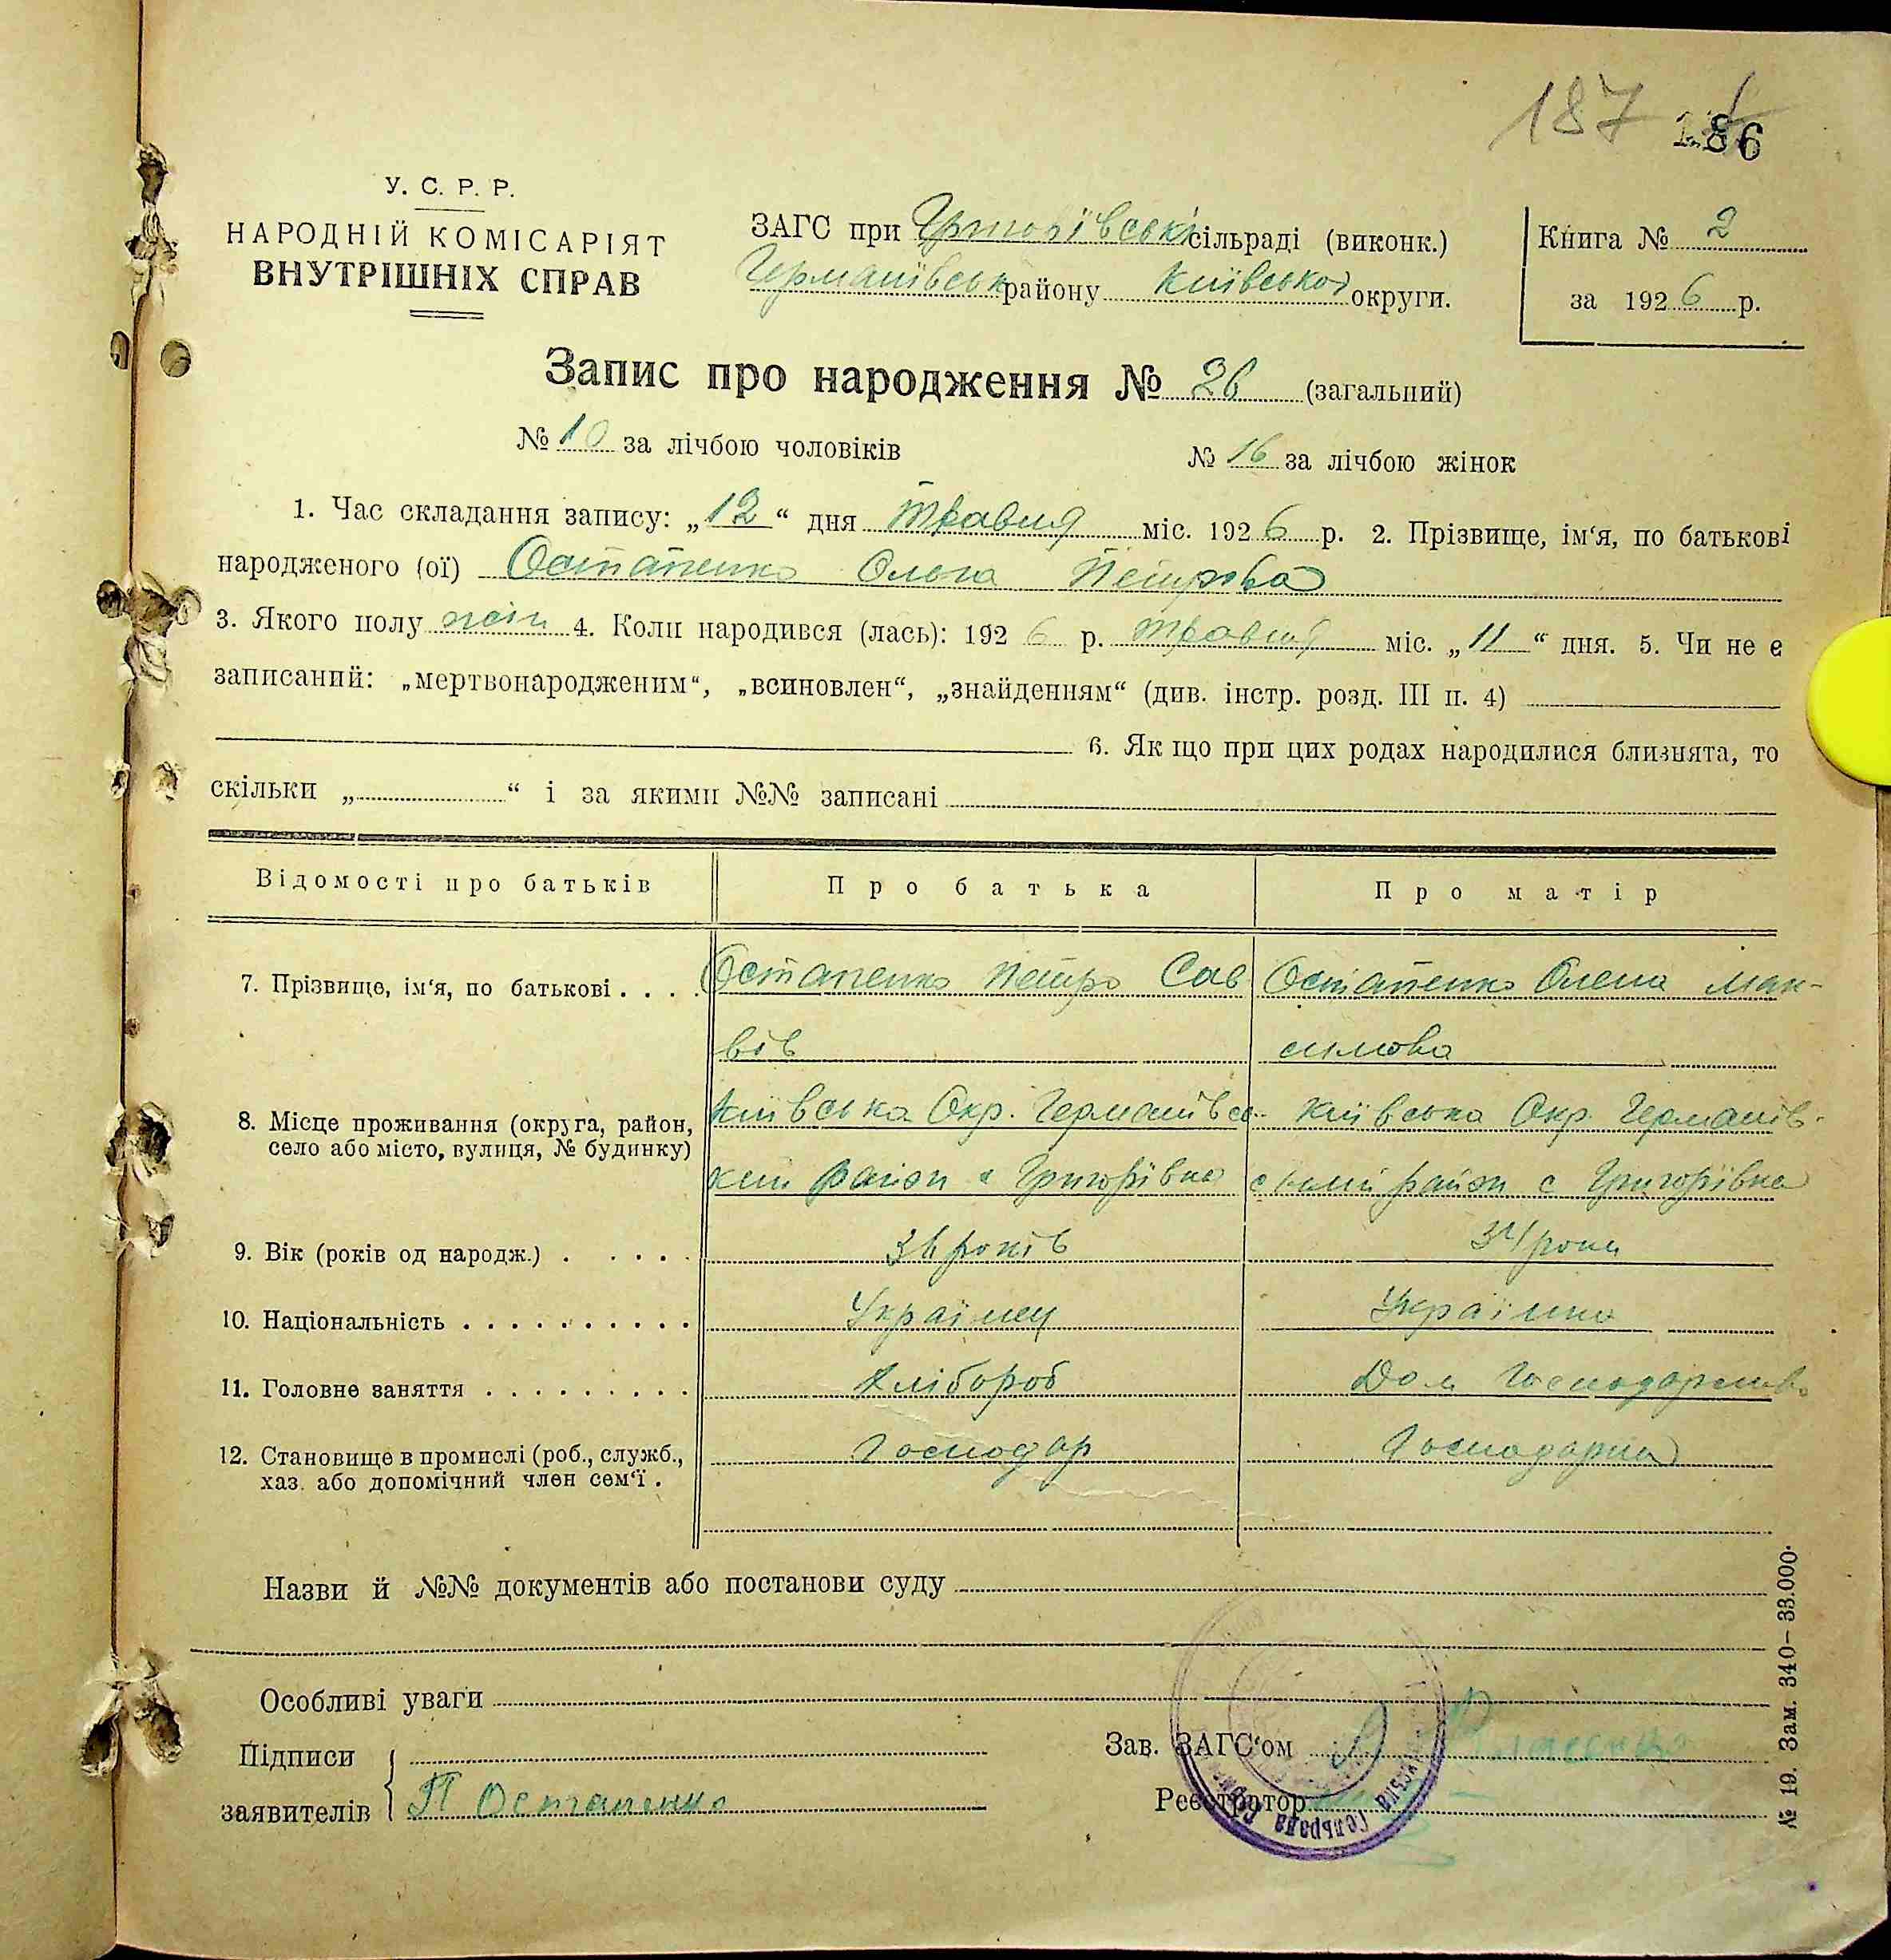 187 186
У. С. Р. Р.
НАРОДНІЙ КОМІСАРІЯТ
ВНУТРІШНІХ СПРАВ
ЗАГС при Григорівські сільраді (виконк.)
Германівськ району Київської округи.
Книга № 2
за 1926 р.
Запис про народження № 26 (загальний)
№ 10 за лічбою чоловіків № 16 за лічбою жінок
1. Час складання запису: „12“ дня травня міс. 1926 р. 2. Прізвище, ім‘я, по батькові
народженого (ої) Остапенко Ольга Петрова
3. Якого полу жін 4. Коли народився (лась): 1926 р. травня міс. „11“ дня. 5. Чи не є
записаний: „мертвонародженим“, „всиновлен“, „знайденням“ (див. інстр. розд. III п. 4)
6. Як що при цих родах народилися близнята, то
скільки „ “ і за якими №№ записані
Відомості про батьків Про батька Про матір
7. Прізвище, ім‘я, по батькові . . . . Остапенко Петро Сав Остапенко Олена Мак-
вів симова
8. Місце проживання (округа, район, Київська Окр. Германівсь- Київська Окр. Германів-
село або місто, вулиця, № будинку)
кий район с Григорівка ський район с Григорівка
9. Вік (років од народж.) . . . . . 36 років 34 роки
10. Національність . . . . . . . . . . Українец Українка
11. Головне заняття . . . . . . . . . Хлібороб Дом Господарство
12. Становище в промислі (роб., служб., Господар Господарка
хаз. або допомічний член сем‘ї .
Назви й №№ документів або постанови суду
Особливі уваги
Підписи
заявителів П Остапенко
Зав. ЗАГС‘ом
Реєстратор
сільрада
№ 19. Зам. 340– 33.000.